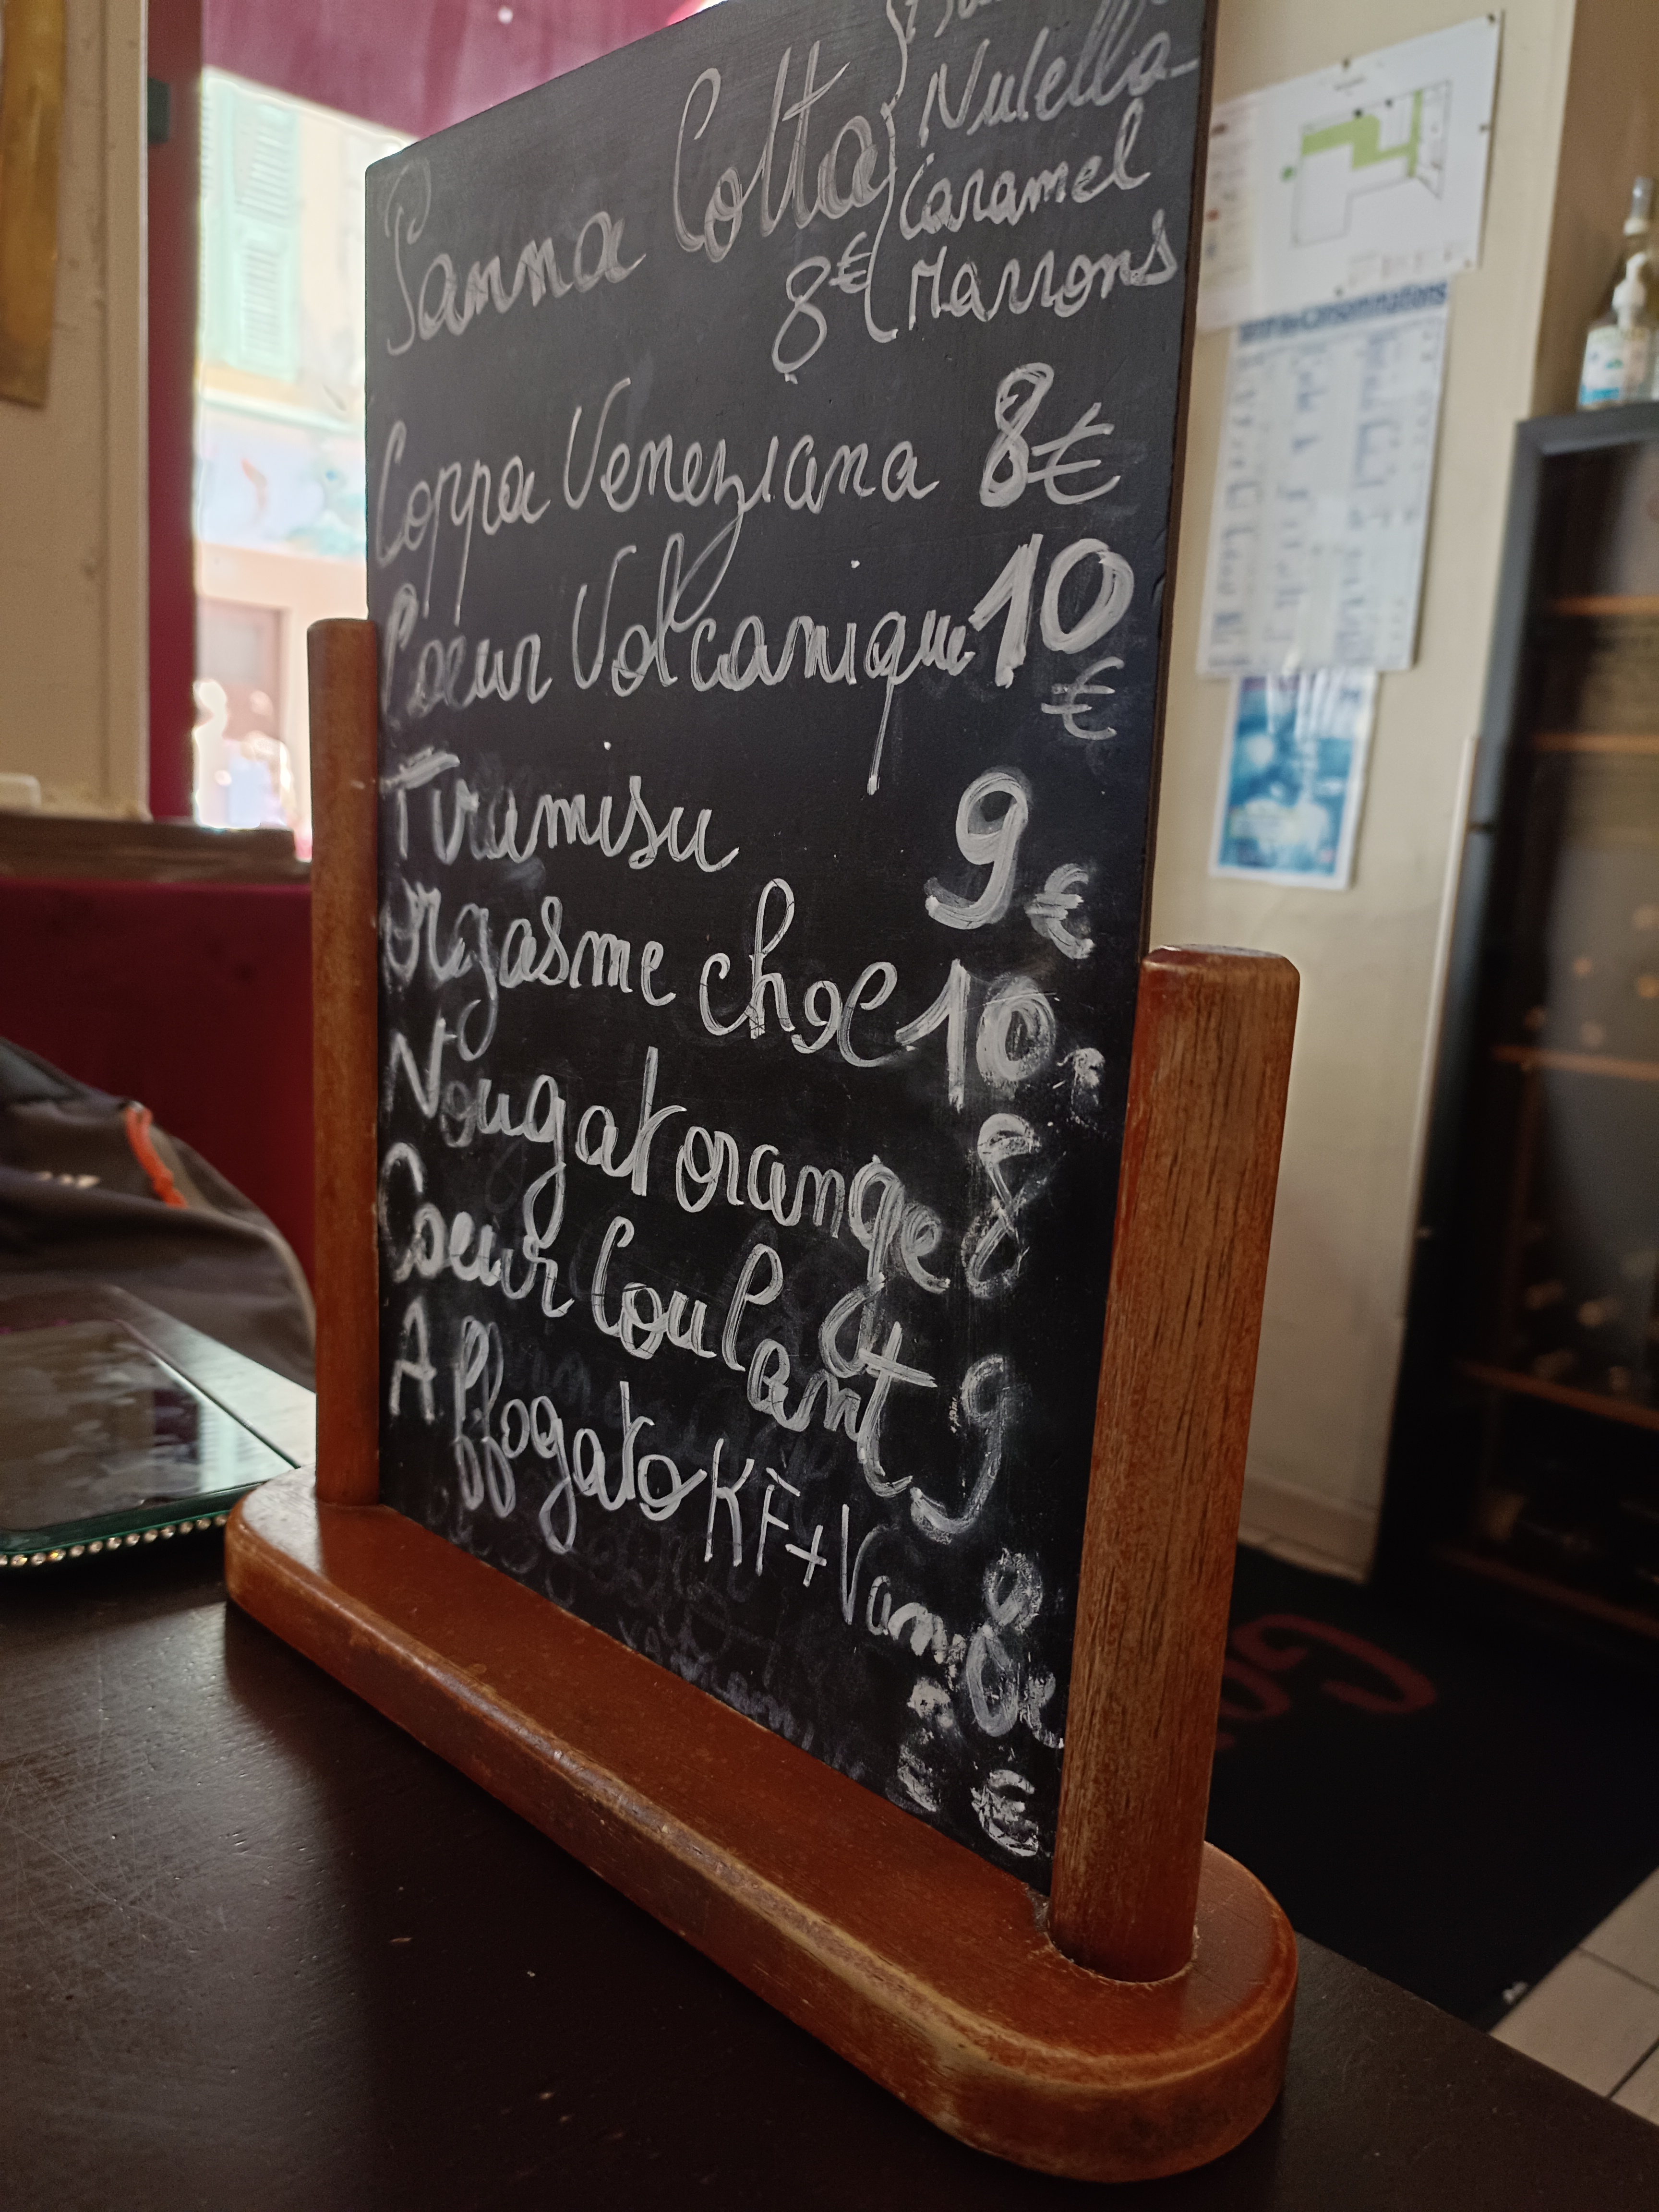 Nutella
Panna Cotta Caramel
8€ Marrons
Coppa Veneziana 8€
Coeur Volcanique 10
€
Tiramisu 9€
Orgasme choc 10
Nougat orange 8
Coeur Coulant 9
Affogato KFè+Van 8€
€
Consommations